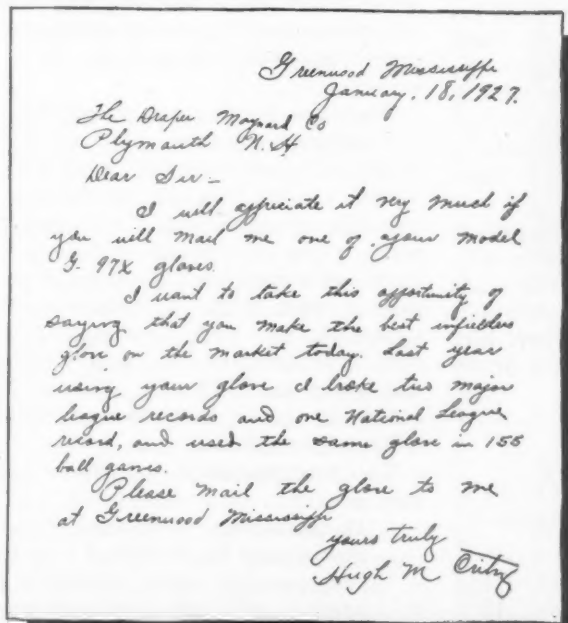 Greenwood Mississippi
January, 18, 1927.
The Draper Maynard Co
Plymouth N.H.
Dear Sir –
I will appriciate it very much if
you will mail me one of your model
G-97X gloves.
I want to take this opportunity of
saying that you make the best infielders
glove on the market today. Last year
using your glove I broke two major
league records and one National League
record, and used the same glove in 155
ball games.
Please mail the glove to me
at Greenwood Mississippi
yours truly
Hugh M Critz